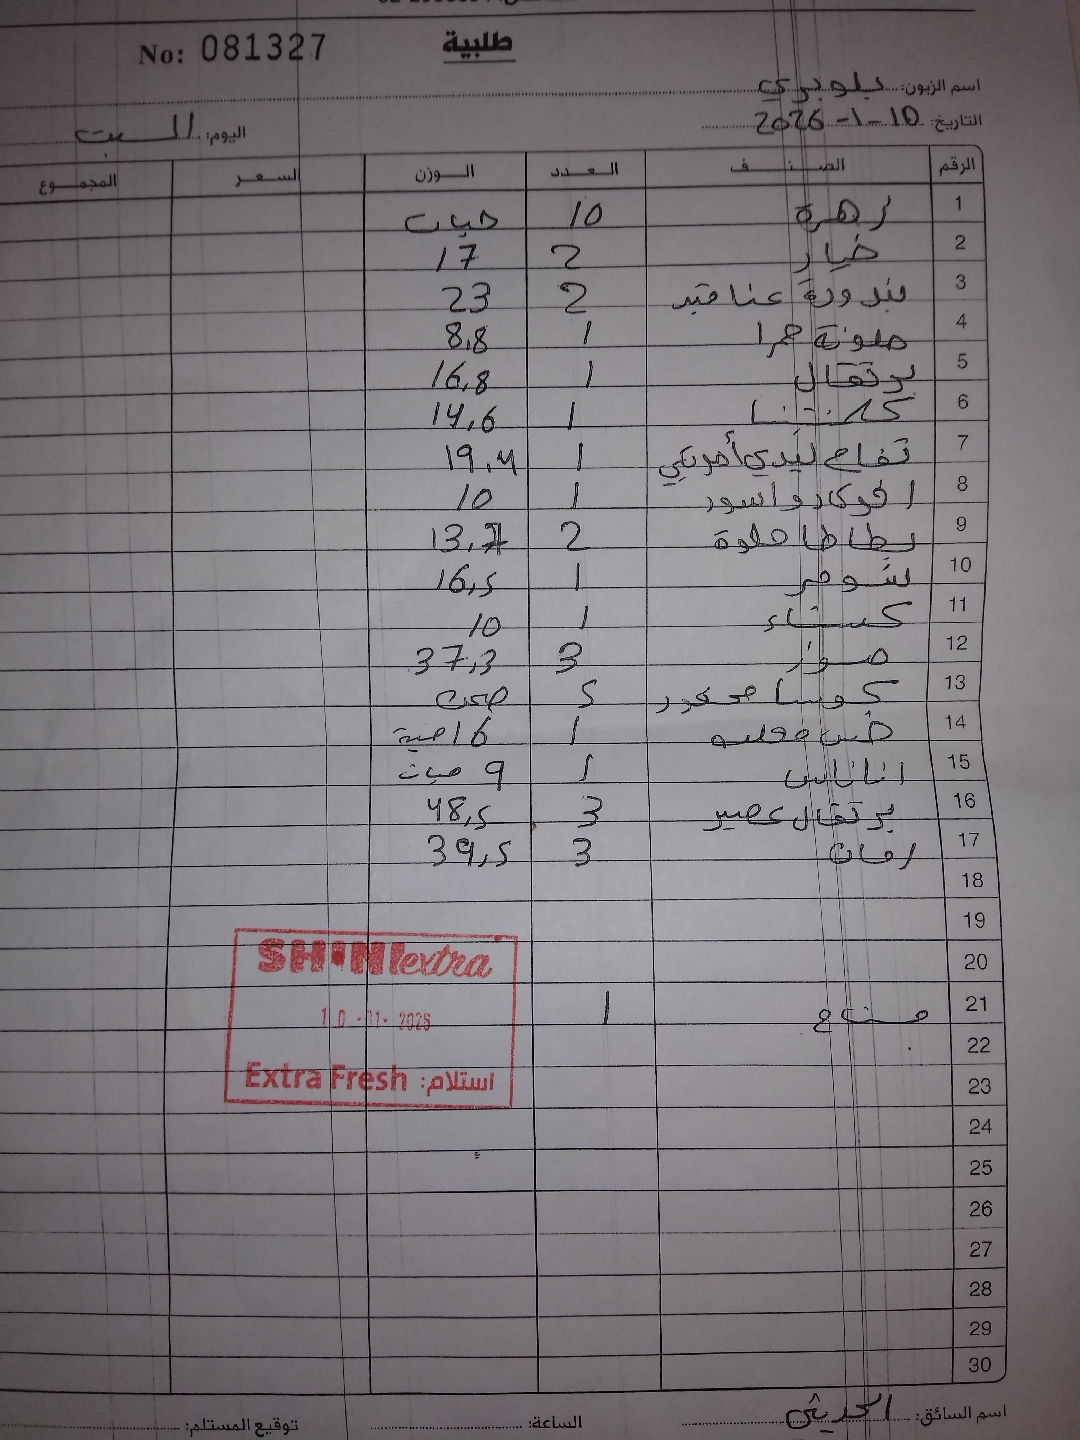 No: 081327 طلبية
اسم الزبون: بلوبري
التاريخ: 10-1-2026 اليوم: السبت
الرقم الصنف العدد الوزن السعر المجموع
1 زهرة 10 حبات
2 خيار 2 17
3 بندورة عناقيد 2 23
4 ملونة حمرا 1 8,8
5 برتقال 1 16,8
6 كلمنتينا 1 14,6
7 تفاح ليدي أمريكي 1 19,4
8 افوكادو اسود 1 10
9 بطاطا حلوة 2 13,7
10 شومر 1 16,5
11 كستناء 1 10
12 موز 3 37,3
13 كوسا محفور 5
14 خس 1 16 حبة
15 اناناس 1 9 حبات
16 برتقال عصير 3 48,5
17 رمان 3 39,5
18
19
20
21 1
22
23
24
25
26
27
28
29
30
SHINI extra
10-01-2026
Extra Fresh :استلام
اسم السائق: الساعة: توقيع المستلم: